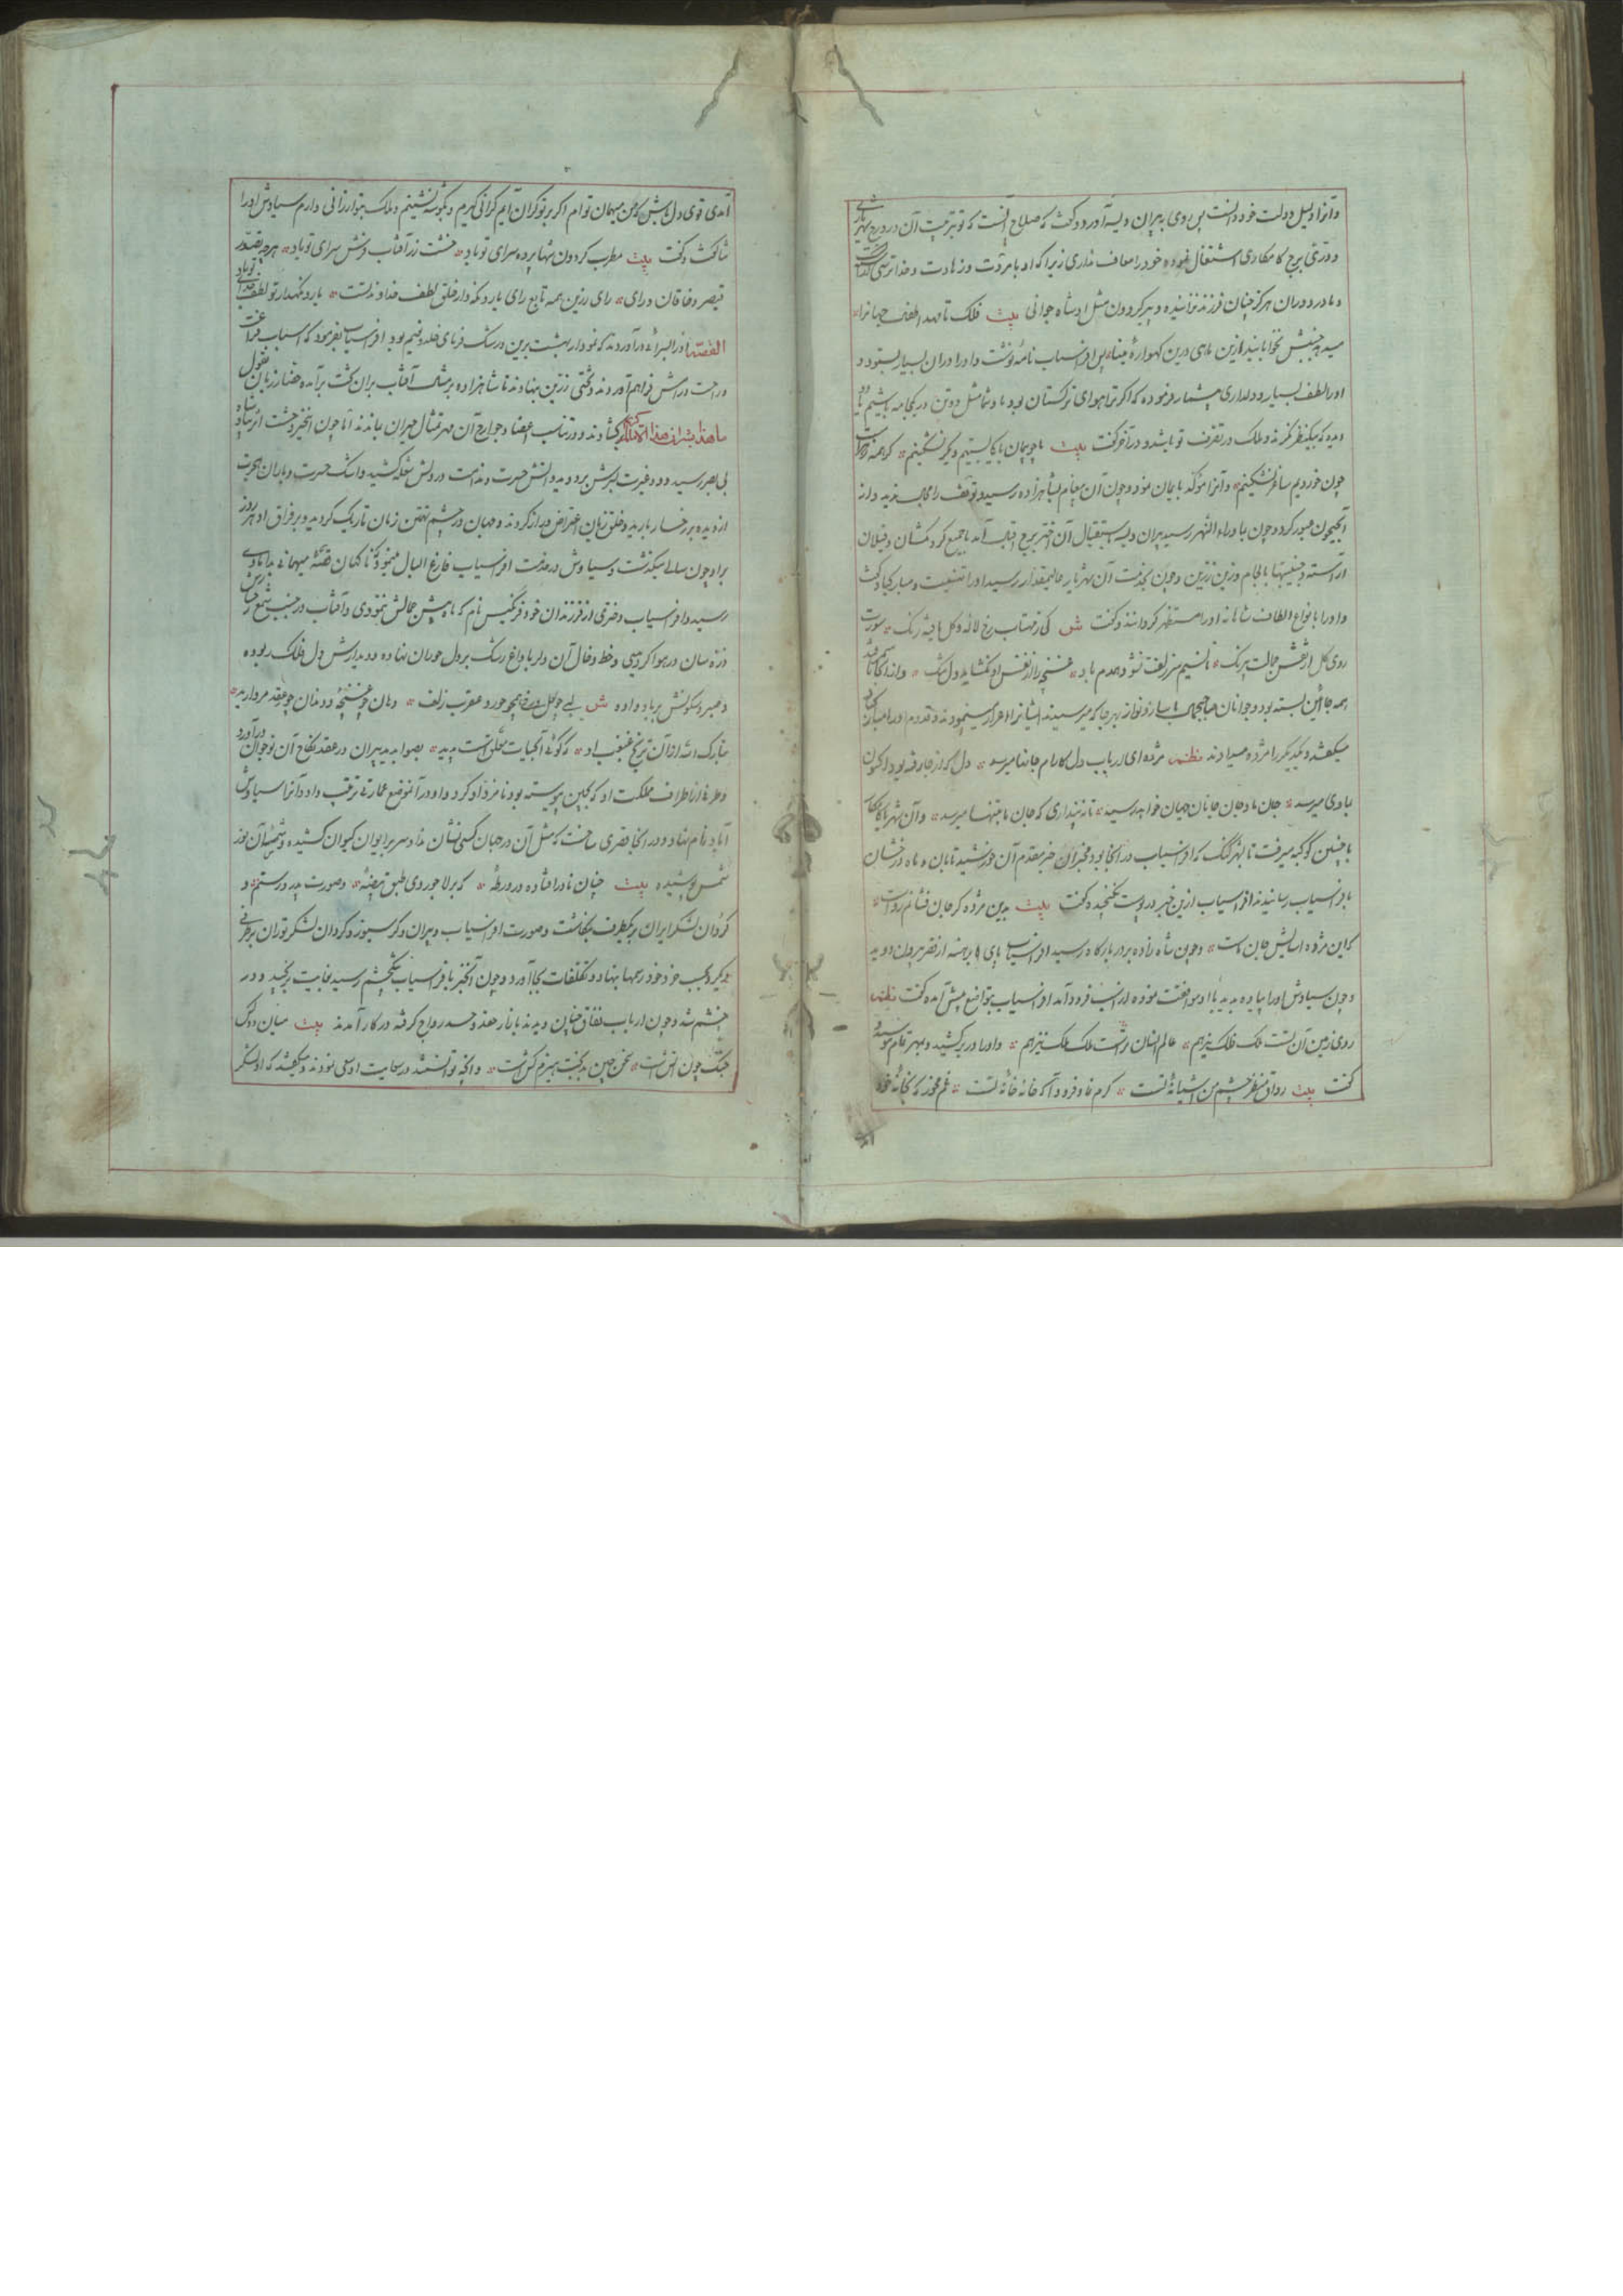 و آنرا دلیل دولت خود دانست پس روی به پیران ویسه آورد و گفت که صلاح آنست که تو بترتیب آن در درج شهریاری
و درّی برج کامکاری اشتغال نموده خود را معاف نداری زیرا که او با مروّت و زهادت و خداترسی
و مادر دوران هرگز چنان فرزند نزائیده و پیر گردون مثل او شاه جوانی بیت فلک تا مهد
میدهد جنبش نخوابانید ازین ماهی درین گهوارهٔ مینا پس افراسیاب نامهٔ نوشت و او را در آن بسیار بستود و
او را لطف بسیار و دلداری بیشمار فرموده که اگر ترا هوای ترکستان بود ما و شما مثل دو تن در یکجامه باشیم
دیده که بیکنظر نگرند و ملک در تصرف تو باشد و در آخر گفت بیت ما چو پیمان با کسی بستیم دیگر نشکنیم گر همه زهر است
چون خوردیم ساغر نشکنیم و آنرا مؤکد بایمان نمود و چون آن پیغام بشاهزاده رسید توقف را مجال ندید و از
آب جیحون عبور کرد و چون بماوراء النهر رسید پیران ویسه باستقبال آن اختر برج اقبال آمد با جمیع گردنکشان و فیلان
آراسته و جنیبتها با لجام و زین زرین و چون بخدمت آن شهریار عالیمقدار رسید او را تهنیت و مبارکباد گفت
و او را بانواع الطاف شاهانه او را مستظهر گردانید و گفت ش کی ز مهتاب رخ لاله و گل یافته رنگ صورت
روی گل از نقش جمالت بیرنگ تا نسیم سر زلفت نشود همدم باد غنچه را از نفس او نگشاید دل تنگ و از آنجا تا
همه جا آئین بسته بود و جوانان صاحبجمال با ساز و نواز بهر جا که میرسیدند ایشانرا اعزاز مینمودند و قدوم او را مبارکباد
میگفتند و یکدیگر را مژده میدادند نظم مژده ای ارباب دل کارام جانها میرسد دل که از جا رفته بود اکنون
بماوی میرسد جان ما و جان جانان جهان خواهد رسید تا نپنداری که جان ما بتنها میرسد و آن
با چنین کوکبه میرفت تا بشهر گنگ که افراسیاب در آنجا بود مخبران خبر مقدم آن خورشید تابان و ماه درخشان
بافراسیاب رسانیدند افراسیاب ازین خبر در پوست نگنجیده گفت بیت بدین مژده گر جان فشانم رواست
که این مژده آسایش جان ماست و چون شاه زاده بدر بارگاه رسید افراسیاب پای برهنه از قصر بیرون دوید
و چون سیاوش او را پیاده بدید با او موافقت نموده از اسب فرود آمد افراسیاب بتواضع پیش آمده گفت نظم
روی زمین آن تست ملک فلک نیز هم عالم انسان تراست ملک ملک نیز هم و او را در بر کشید و بمهر تمام
گفت بیت رواق منظر چشم من آشیانهٔ تست کرم نما و فرود آ که خانه خانهٔ تست غم مخور که بخانهٔ خود
آمدی
آمدی قوی دل باش که من میهمان توام اگر بر تو گران آیم گرانی گیرم و بگوشه نشینم و ملک بتو ارزانی دارم سیاوش او را
ثنا گفت و گفت بیت مطرب گردون مها پرده سرای تو باد خشت زر آفتاب فرش سرای تو باد هر چه تصور
قیصر و خاقان و رای رای رزین همه تابع رای تو باد یار و نگهدار تو لطف
القصه او را بسرائی درآوردند که نمودار بهشت برین و رشک فرمای خلد و نعیم بود افراسیاب بفرمود که اسباب
و راحت در آتش فراهم آوردند و تختی زرّین بنهادند تا شاهزاده بر مثال آفتاب بران تخت برآمده حضار زبان بقول
ما هذا بشرا ان هذا الا ملک کریم گشادند و در تناسب اعضا و جوارح آن مهر تمثال حیران بماندند اما چون این خبر وحشت اثر
بی صبر رسید دود غیرت بسرش بر دوید و آتش حسرت و ندامت در دلش شعله کشید و اشک حسرت و باران
از دیده بر رخسار بارید و خلق زبان اعتراض دراز کردند و جهان در چشم تهمتن زمان تاریک گردید و بر فراق او هر روز
برو چون سالی میگذشت و سیاوش در خدمت افراسیاب فارغ البال میبود
رسید و افراسیاب دختری از فرزندان خود فرنگیس نام که ماه پیش جمالش ننمودی و آفتاب در جنب شمع رخش
ذره سان در هوا گردیدی و خط و خال آن دلربا داغ رشک بر دل حوران نهاده و دیدارش دل فلک ربوده
و صبر و سکونش بر باد داده ش لب چو گل رخ همچو حور و عقرب زلف دهان چو غنچه و دندان چو عقد مروارید
تبارک الله از آن ترنج غبغب او که گوئی آبحیات معلّق است پدید بصوابدید پیران در عقد نکاح آن نوجوان درآورد
و طرفی از اطراف مملکت او که بچین پیوسته بود نامزد او کرد و او در آنموضع عمارتی ترتیب داد و آنرا سیاوش
آباد نام نهاد و در آنجا قصری ساخت که مثل آن در جهان کس نشان نداد سر بر ایوان کیوان کشیده
شمس پوشیده بیت چنان نادر افتاده در ورطهٔ که بر لاجوردی طبق بیضهٔ و صورت پدر و رستم و
گردان لشکر ایران بر یکطرف بنگاشت و صورت افراسیاب و پیران و گرسیوز و گردان لشکر توران بر طرفی
دیگر و بحسب خود خود رسمها بنهاد و تکلفات بجا آورد و چون آنخبر بافراسیاب رسید بغایت برنجید و در
خشم شد و چون ارباب نفاق چنان دیدند بازار حقد و حسد رواج گرفته در کار آمدند بیت میان دو کس
جنگ چون آتش است سخن چین بدبخت هیزم کش است و آنچه توانستند در سعایت او سعی نمودند و میگفتند که او لشکر